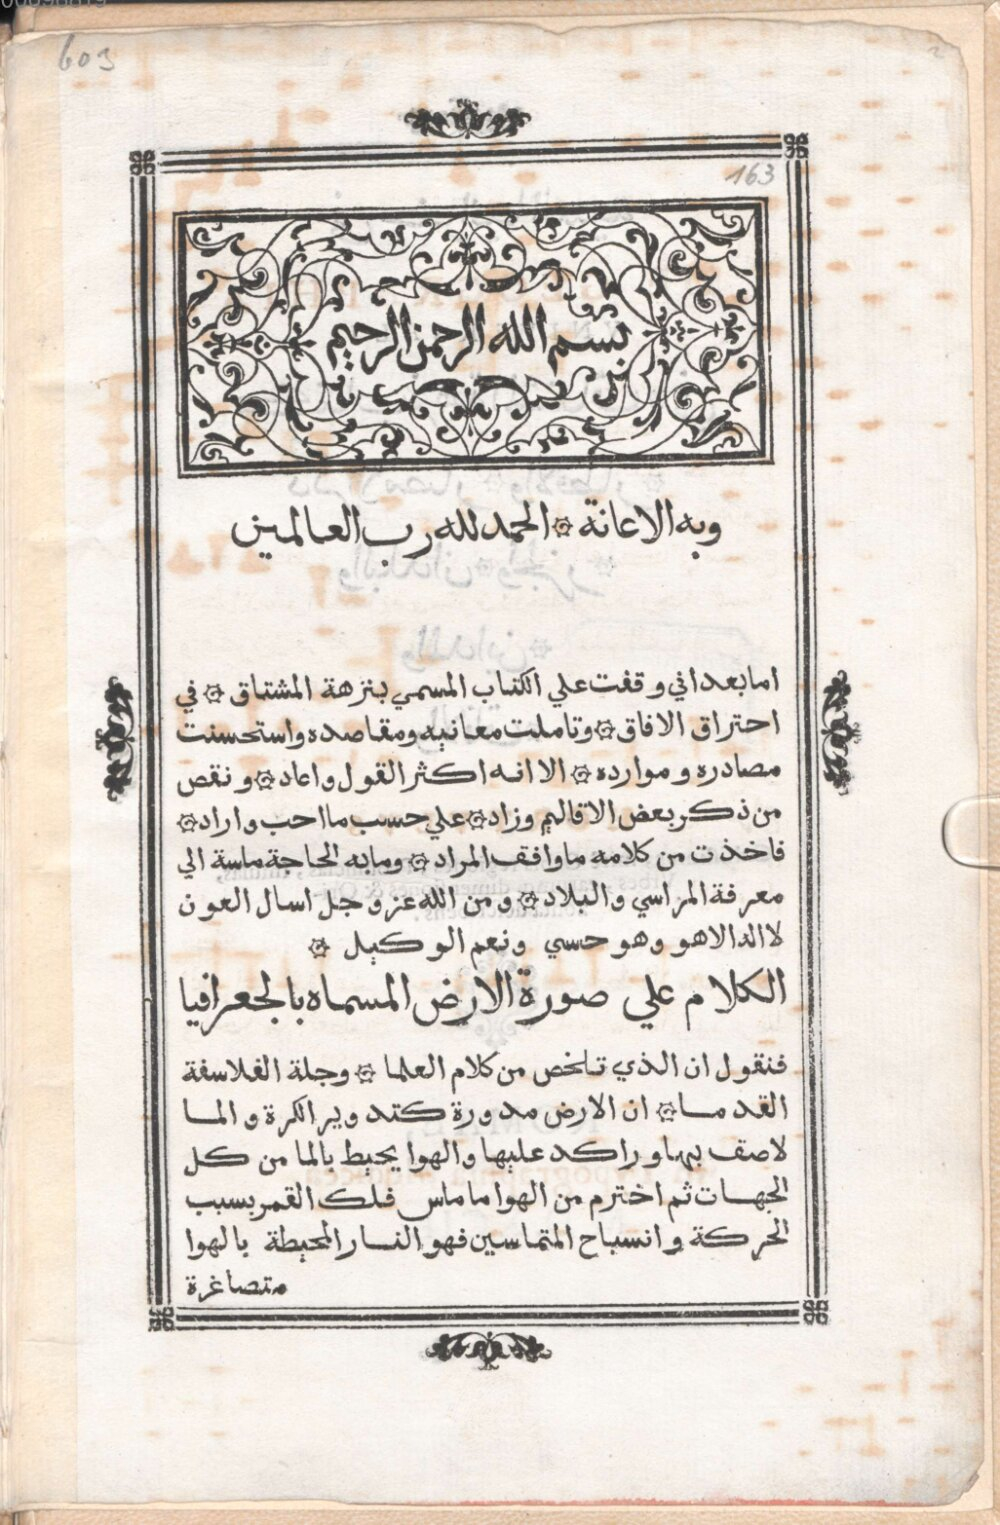 603
163
بسم الله الرحمن الرحيم
وبه الاعانة ۞ الحمد لله رب العالمين
اما بعد اني وقفت علي الكتاب المسمي بنزهة المشتاق ۞ في
احتراق الافاق ۞ وتاملت معانيه ومقاصده واستحسنت
مصادره وموارده ۞ الا انه اكثر القول واعاد ۞ ونقص
من ذكر بعض الاقاليم وزاد ۞ علي حسب ما احب واراد ۞
فاخذت من كلامه ما وافق المراد ۞ وما به الحاجة ماسة الي
معرفة المراسي والبلاد ۞ ومن الله عز وجل اسال العون
لا اله الا هو وهو حسبي ونعم الوكيل ۞
الكلام علي صورة الارض المسماه بالجعرافيا
فنقول ان الذي تلخص من كلام العلما ۞ وجلة الفلاسفة
القدما ۞ ان الارض مدورة كتدوير الكرة والما
لاصف بها وراكد عليها والهوا يحيط بالما من كل
الجهات ثم اخترم من الهوا ما ماس فلك القمر بسبب
الحركة وانسباح المتماسين فهو النار المحيطة بالهوا
متصاغرة